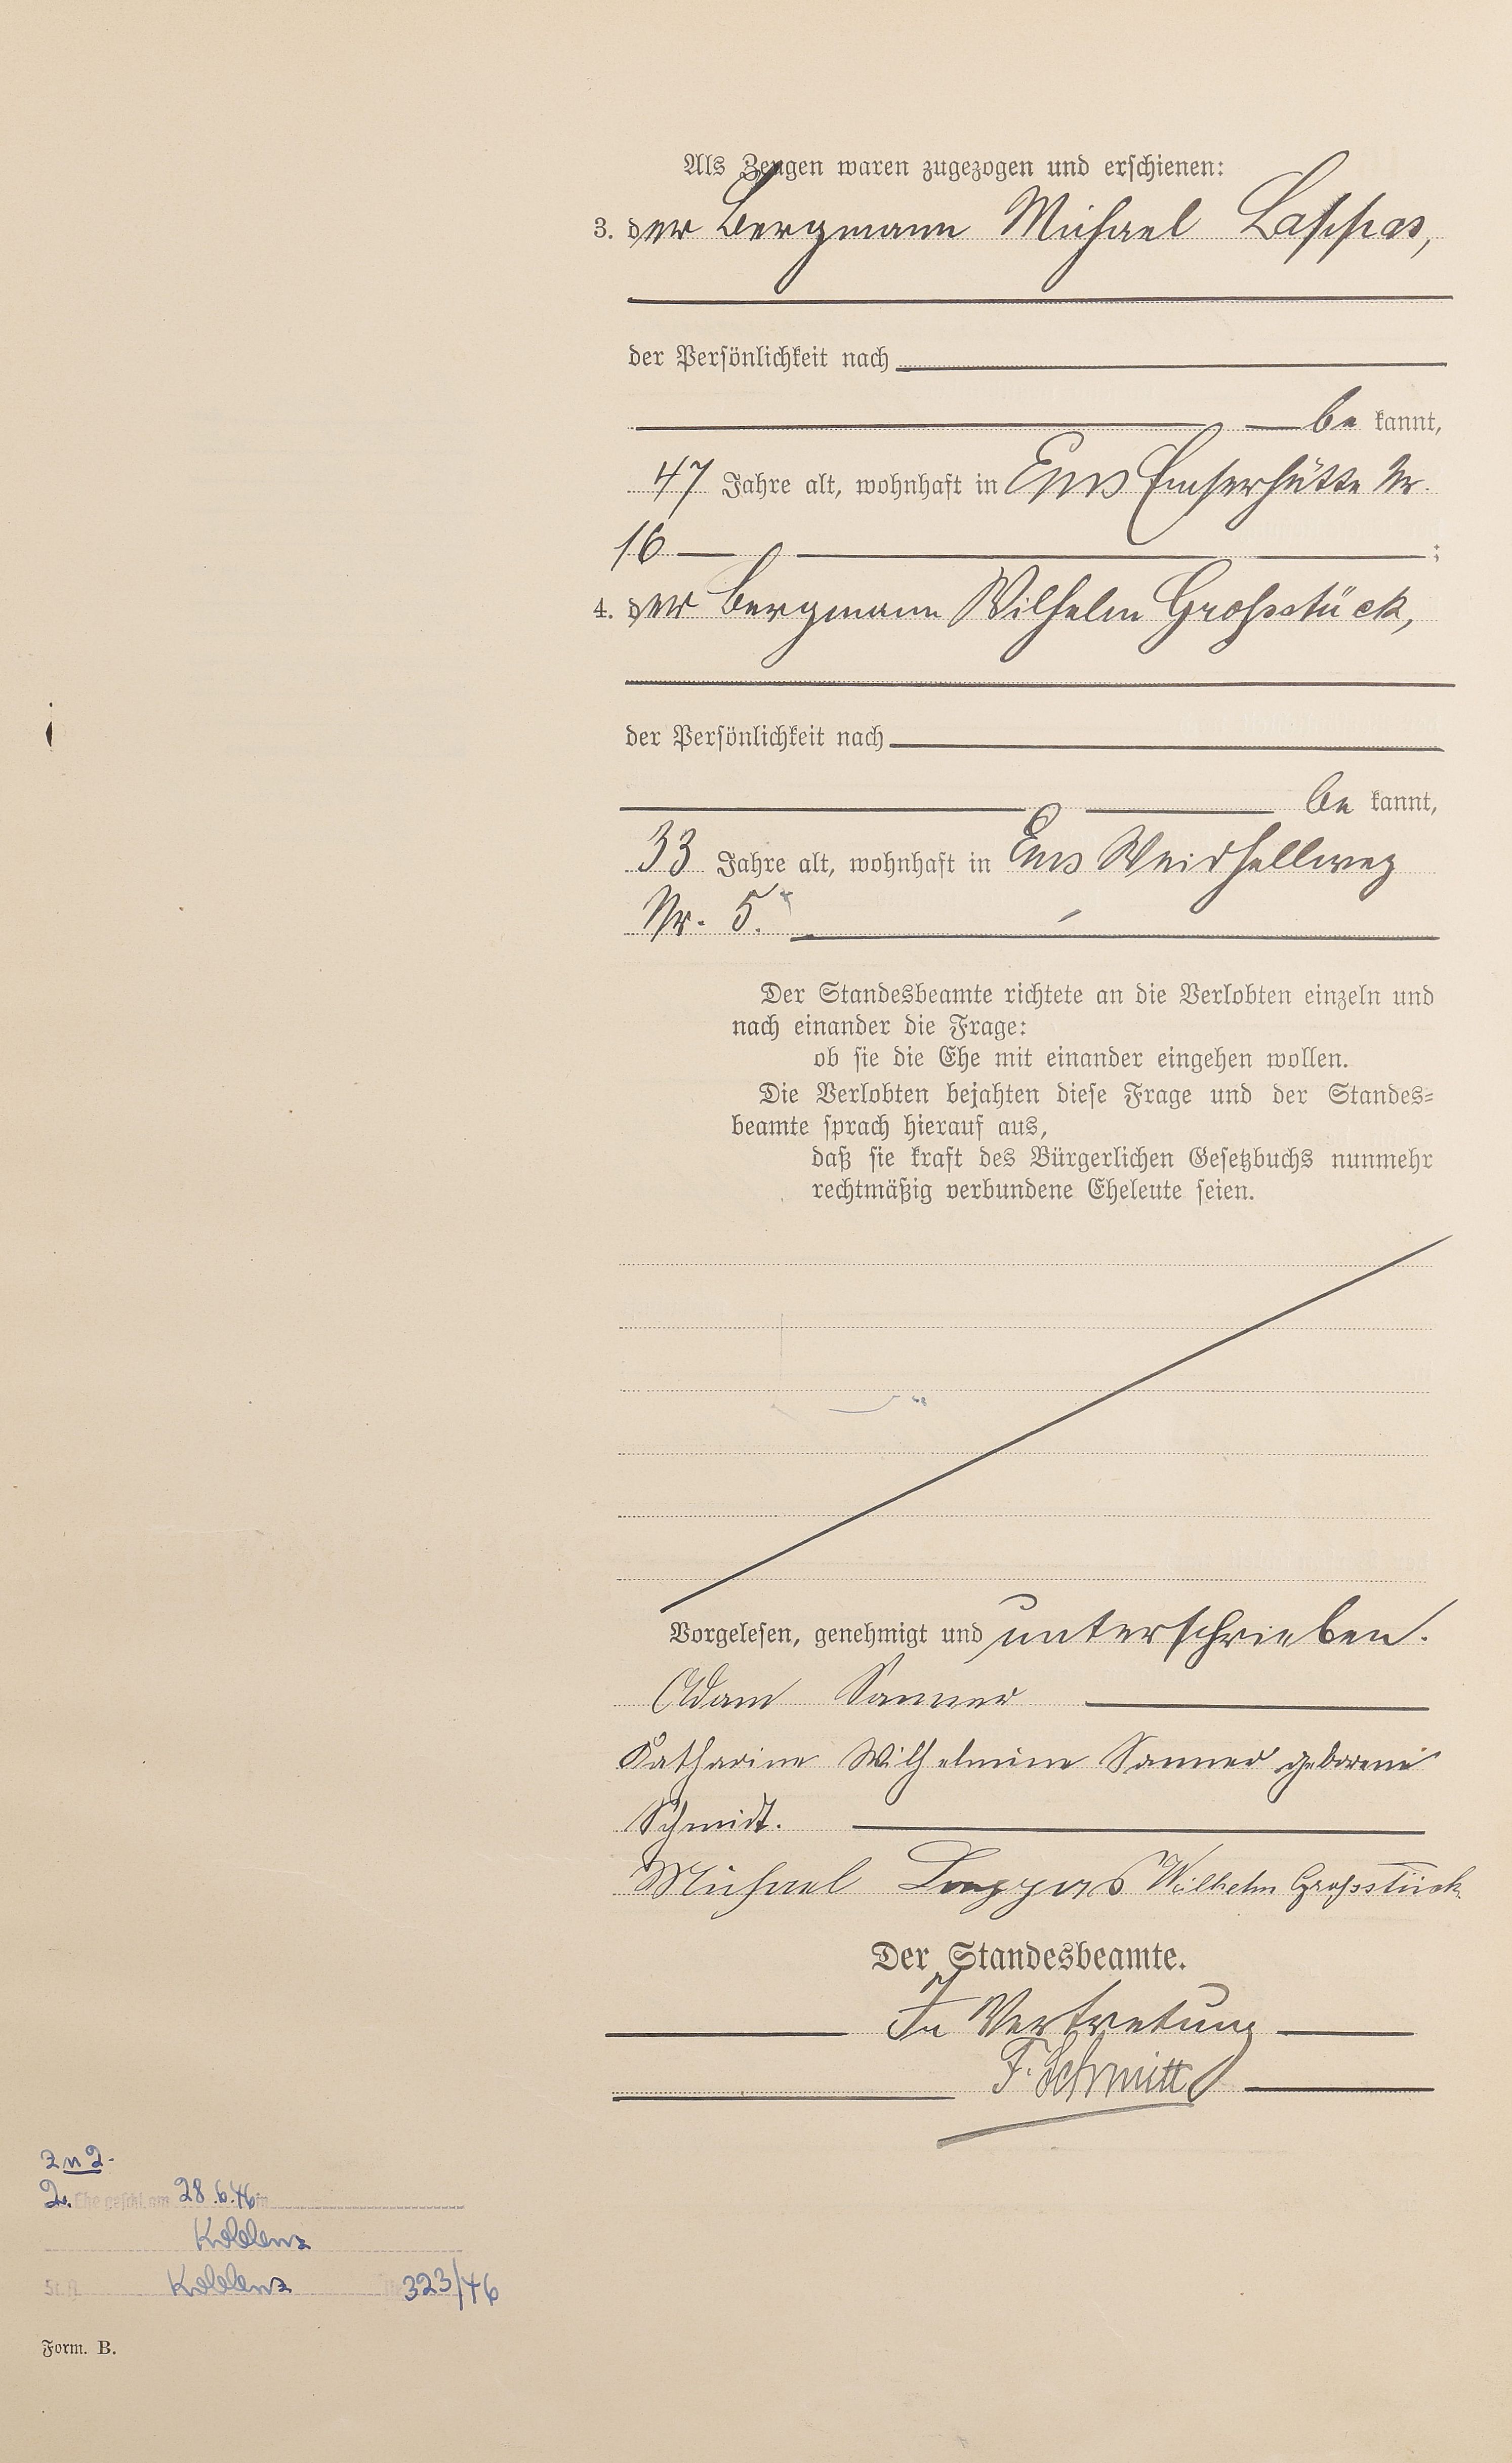 Als Zeugen waren zugezogen und erschienen:
3. der Bergmann Michael Lappas,
der Persönlichkeit nach
be kannt,
47 Jahre alt, wohnhaft in Ems Emserhütte Nr.
16 ;
4. der Bergmann Wilhelm Großstück,
der Persönlichkeit nach
be kannt,
33 Jahre alt, wohnhaft in Ems Weidhellweg
Nr. 5.
Der Standesbeamte richtete an die Verlobten einzeln und
nach einander die Frage:
ob sie die Ehe mit einander eingehen wollen.
Die Verlobten bejahten diese Frage und der Standes=
beamte sprach hierauf aus,
daß sie kraft des Bürgerlichen Gesetzbuchs nunmehr
rechtmäßig verbundene Eheleute seien.
Vorgelesen, genehmigt und unterschrieben.
Adam Sanner
Katharine Wilhelmine Sanner geborene
Schmidt.
Michael Lappas Wilhelm Großstück
Der Standesbeamte.
In Vertretung
F. Schmitt
2. Ehe geschl. am 28.6.46 in
Koblenz
St.A. Koblenz Nr. 323/46
Form. B.